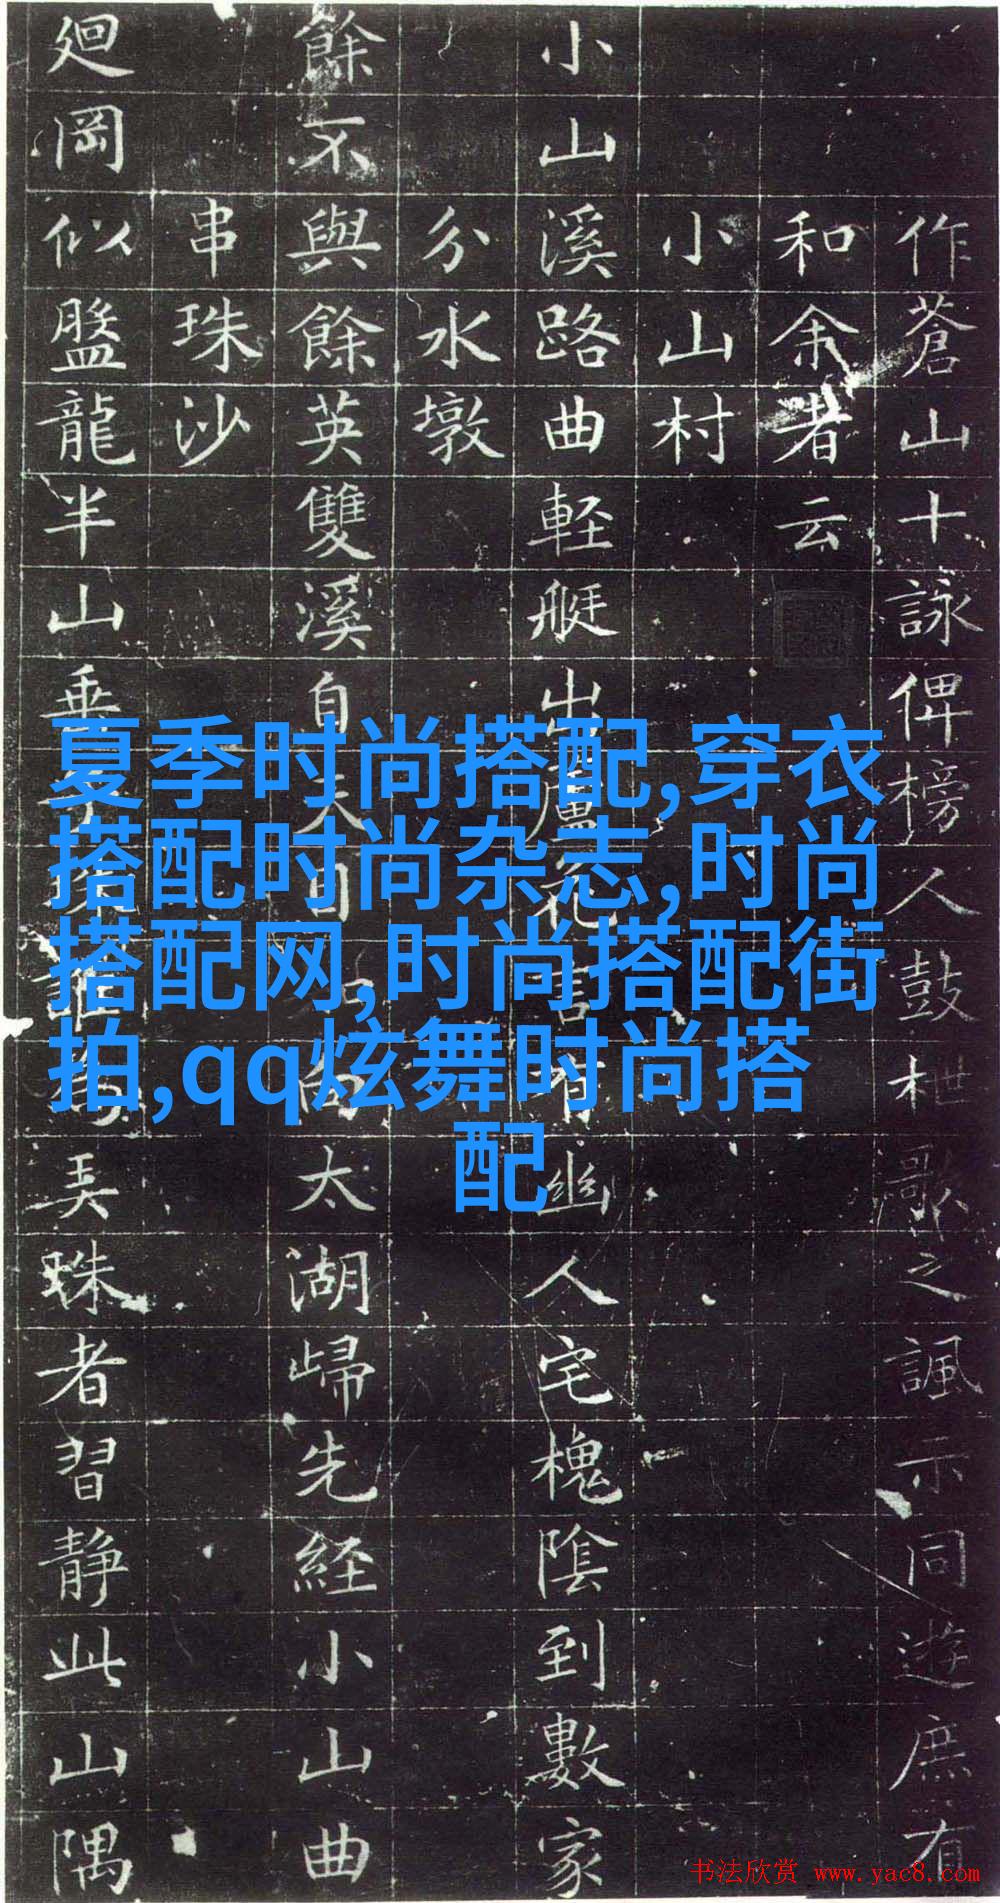 作蒼山十詠俾榜人鼓枻歌之諷示同遊庶有
和余者云
小山村
小山溪路曲軽艇出花言有幽人宅槐陰到數家
分水墩
餘不與餘英雙溪自天目太湖歸先経小山曲
串珠沙
廻岡似盤龍半山垂誰弄珠者習静此山隅
夏季时尚搭配,穿衣
搭配时尚杂志,时尚
搭配网,时尚搭配街
拍,qq炫舞时尚搭
配
书法欣赏 www.yac8.com